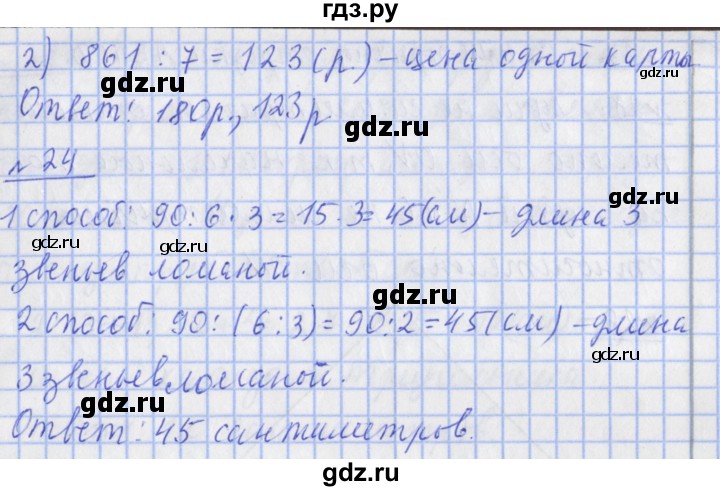 гдз.ру
2) 861 : 7 = 123 (р.) – цена одной карты.
gdz.ru gdz.ru
Ответ: 180р., 123р
gdz.ru
№ 24
gdz.ru
1 способ: 90 : 6 · 3 = 15 · 3 = 45 (см) – длина 3
gdz.ru gdz.ru
звеньев ломаной.
gdz.ru
2 способ: 90 : (6 : 3) = 90 : 2 = 45 (см) – длина
gdz.ru gdz.ru
3 звеньев ломаной.
gdz.ru
Ответ: 45 сантиметров.
gdz.ru gdz.ru
gdz.ru